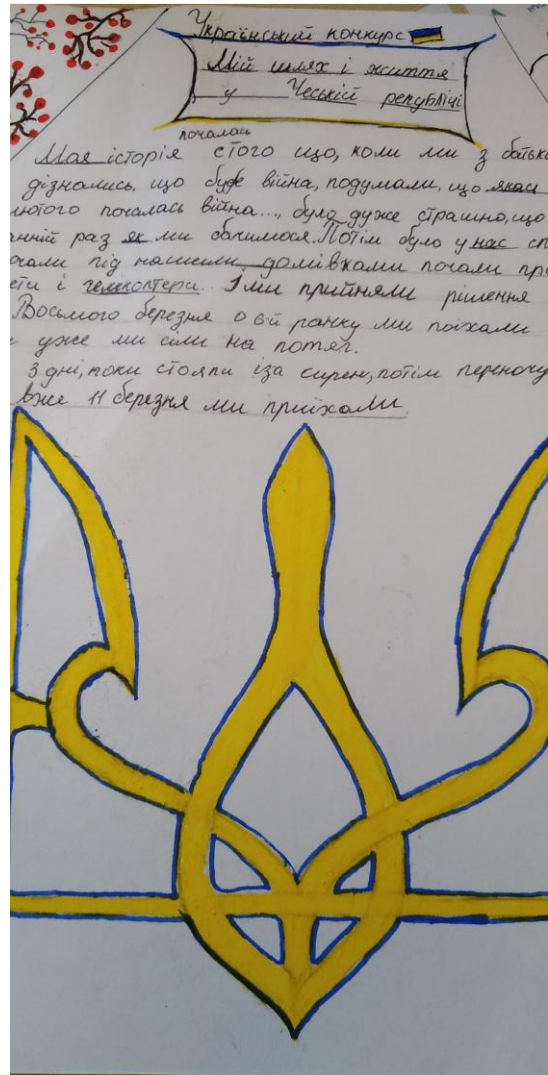 Український конкурс
Мій шлях і життя
у Чеській републіці
почалась
Моя історія стого що, коли ми з батька
дізнались, що буде війна, подумали, що якась
лютого почалась війна..., було дуже страшно, що
анній раз як ми бачимося. Потім було у нас сп
очали під нашими домівками почали пр
ети і гелікоптери. І ми прийняли рішення
Восьмого березня о 6й ранку ми поїхали
уже ми сіли на потяг.
3 дні, поки стояли іза сирен, потім переночу
вже 11 березня ми приїхали.